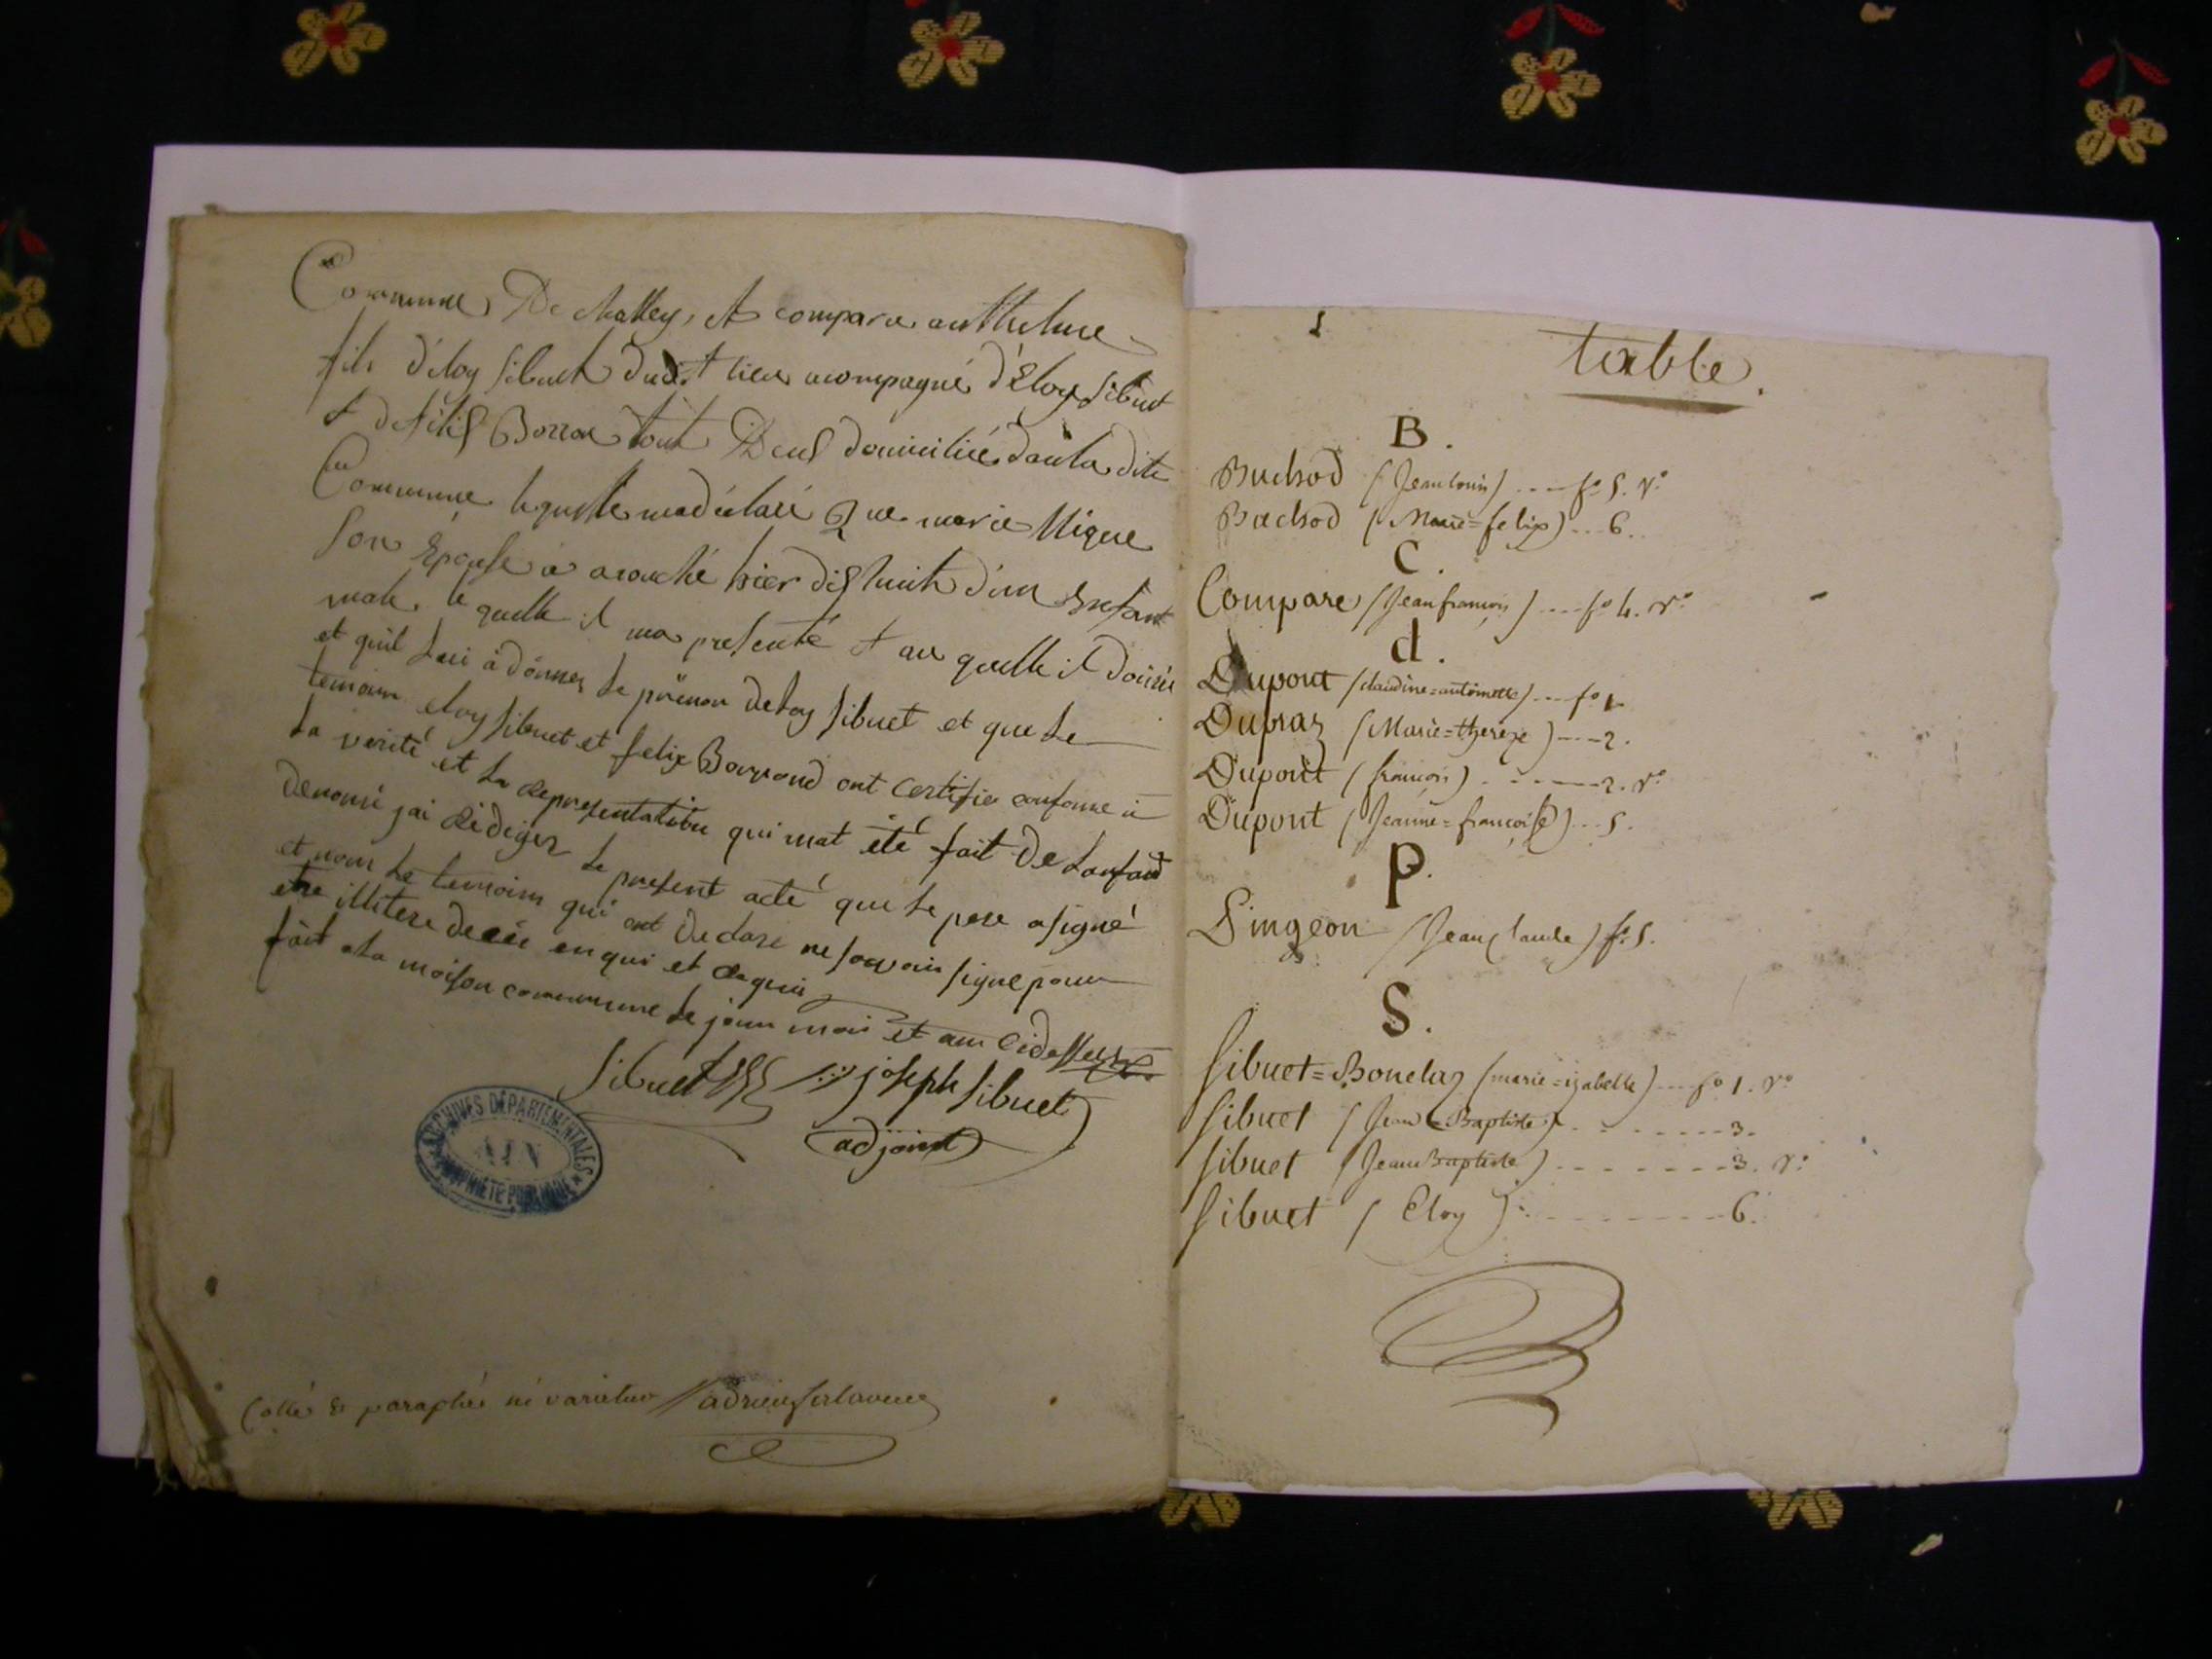 Commune De et comparu
fils d'éloy Sibuet dudit lieu acompagné d'Eloy Sibuet
Borron tout Deux domiciliée dans la dite
Commune le quelle ma déclaré Que marie
Son Épouse a acouché hier dix huit d'un Enfant
male, le quelle il ma presenté et au quelle il
et quil Lui à donner Le prénon deloy Sibuet et que Le
temoin eloy Sibuet et felix ont certifier conforme à
La verité et La representation qui mat été fait De Lanfant
denomé jai Rediger Le present acte que Le pere a signé
et non Le temoins qui ont Declare ne savoir signe pour
etre illitere de ce enqui et
fait a La maison commune Le jour moi et an Cidessus
Sibuet joseph Sibuet
adjoint
ARCHIVES DÉPARTEMENTALES
AIN
PROPRIÉTÉ PUBLIQUE
Cotté & paraphé ne varietur
table.
B.
Buchod (Jean louis) --- fo 5. vo
Bachod (Marie=felix) -- 6.
C.
Compare (Jean françois) --- fo 4. vo
d.
Dupont (claudine=antoinette) --- fo 1
Dupraz (Marie=thereze) --- 2.
Dupont (françois) ------ 2. vo
Dupont (Jeanne=françoise) -- 5.
P.
Pingeon (Jean Claude) fo 5.
S.
Sibuet=Bonelaz (marie=izabelle) --- fo 1. vo
Sibuet (Jean Baptiste) ------- 3.
Sibuet (Jean Baptiste) ------- 3. vo
Sibuet (Eloy) -------- 6.